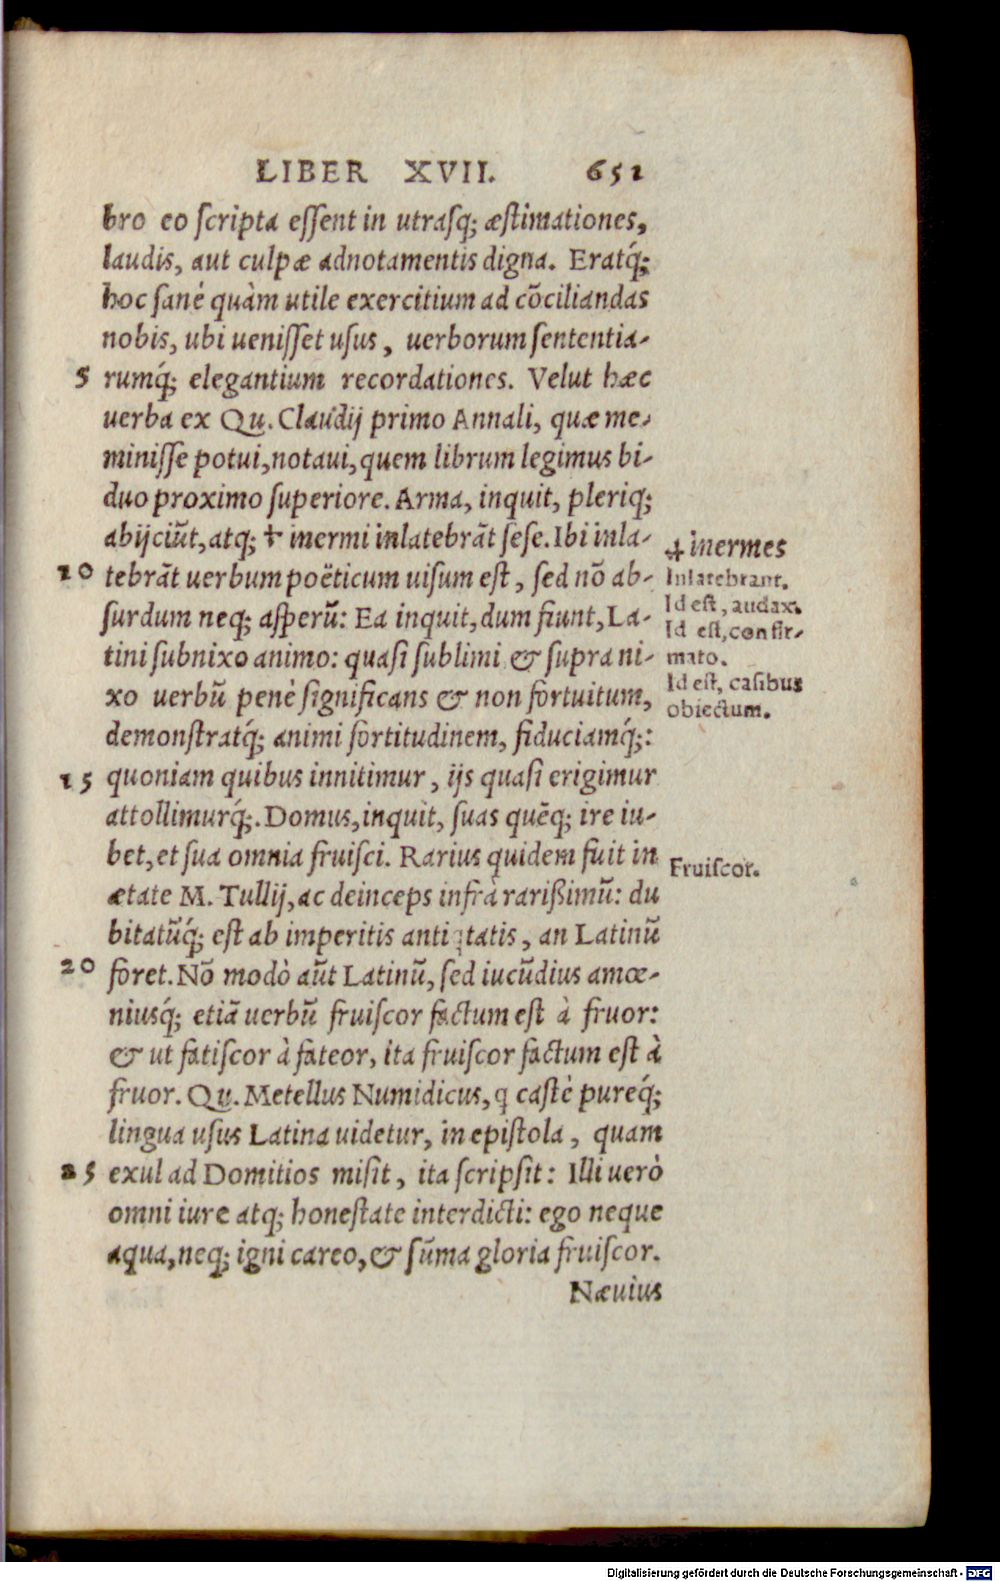 LIBER XVII. 651
bro eo scripta essent in utrasq; æstimationes,
laudis, aut culpæ adnotamentis digna. Eratq́;
hoc sané quàm utile exercitium ad cōciliandas
nobis, ubi uenisset usus, uerborum sententia-
5 rumq́; elegantium recordationes. Velut hæc
uerba ex Qu. Claudij primo Annali, quæ me-
minisse potui, notaui, quem librum legimus bi-
duo proximo superiore. Arma, inquit, pleriq;
abijciūt, atq; ☩ inermi inlatebrāt sese. Ibi inla-
☩ inermes
10 tebrāt uerbum poëticum uisum est, sed nō ab-
Inlatebrant.
surdum neq; asperū: Ea inquit, dum fiunt, La-
Id est, audax.
Id est, confir-
tini subnixo animo: quasi sublimi & supra ni-
mato.
xo uerbū penè significans & non fortuitum,
Id est, casibus
obiectum.
demonstratq́; animi fortitudinem, fiduciamq́;:
15 quoniam quibus innitimur, ijs quasi erigimur
attollimurq́;. Domus, inquit, suas quēq; ire iu-
bet, et sua omnia fruisci. Rarius quidem fuit in
Fruiscor.
ætate M. Tullij, ac deinceps infrà rarißimū: du
bitatūq́; est ab imperitis antiqtatis, an Latinū
20 foret. Nō modò aūt Latinū, sed iucūdius amœ-
niusq́; etiā uerbū fruiscor factum est à fruor:
& ut fatiscor à fateor, ita fruiscor factum est à
fruor. Qu. Metellus Numidicus, q castè pureq́;
lingua usus Latina uidetur, in epistola, quam
25 exul ad Domitios misit, ita scripsit: Illi uerò
omni iure atq; honestate interdicti: ego neque
aqua, neq; igni careo, & sūma gloria fruiscor.
Næuius
Digitalisierung gefördert durch die Deutsche Forschungsgemeinschaft - DFG